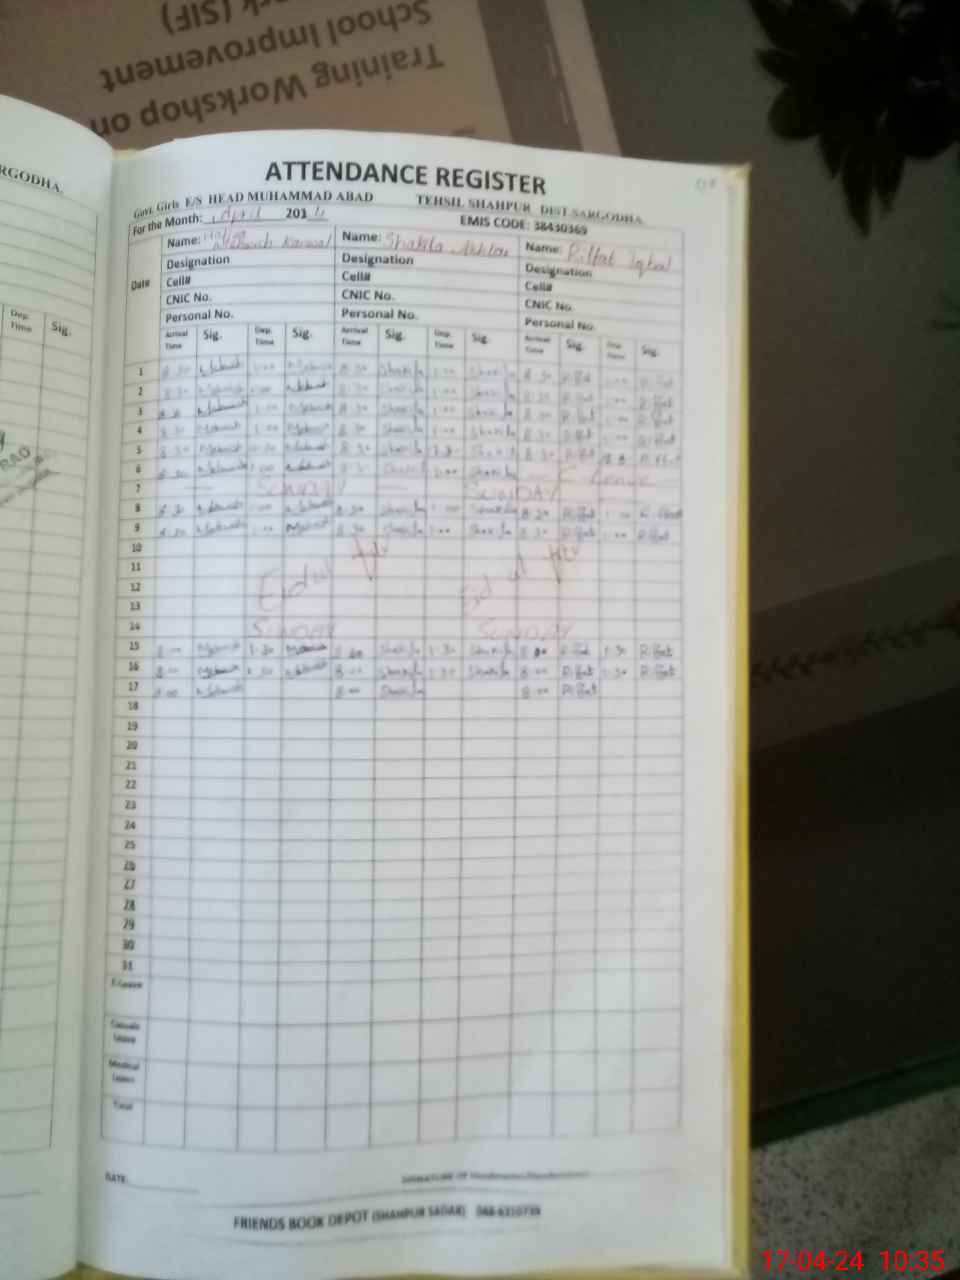 Training Workshop on
School Improvement
(SIF)
RGODHA.
Dep. Time Sig.
RAO
ATTENDANCE REGISTER
Govt. Girls E/S HEAD MUHAMMAD ABAD TEHSIL SHAHPUR DIST.SARGODHA.
For the Month: April 201 EMIS CODE: 38430369
Date
Name: Mehwish Kanwal Name: Shakila Akhtar Name: Riffat Iqbal
Designation Designation Designation
Cell# Cell# Cell#
CNIC No. CNIC No. CNIC No.
Personal No. Personal No. Personal No.
Arrival Time Sig. Dep. Time Sig. Arrival Time Sig. Dep. Time Sig. Arrival Time Sig. Dep. Time Sig.
1 8:30 Mehwish 1:00 Mehwish 8:30 Shakila 1:00 Shakila 8:30 Riffat 1:00 Riffat
2 8:30 Mehwish 1:00 Mehwish 8:30 Shakila 1:00 Shakila 8:30 Riffat 1:00 Riffat
3 8:30 Mehwish 1:00 Mehwish 8:30 Shakila 1:00 Shakila 8:30 Riffat 1:00 Riffat
4 8:30 Mehwish 1:00 Mehwish 8:30 Shakila 1:00 Shakila 8:30 Riffat 1:00 Riffat
5 8:30 Mehwish Mehwish 8:30 Shakila Shakila 8:30 Riffat Riffat
6 8:30 Mehwish 1:00 Mehwish 8:30 Shakila 1:00 Shakila
7 SUNDAY SUNDAY
8 8:30 Mehwish 1:00 Mehwish 8:30 Shakila 1:00 Shakila 8:30 Riffat 1:00 Riffat
9 8:30 Mehwish 1:00 Mehwish 8:30 Shakila 1:00 Shakila 8:30 Riffat 1:00 Riffat
10
11
12 Eid ul fitr Eid ul fitr
13
14 SUNDAY SUNDAY
15 8:00 Mehwish 1:30 Mehwish 8:00 Shakila 1:30 Shakila 8:00 Riffat 1:30 Riffat
16 8:00 Mehwish 1:30 Mehwish 8:00 Shakila 1:30 Shakila 8:00 Riffat 1:30 Riffat
17 8:00 Mehwish 8:00 Shakila 8:00 Riffat
18
19
20
21
22
23
24
25
26
27
28
29
30
31
Casual Leave
Medical Leave
Total
DATE
FRIENDS BOOK DEPOT (SHAHPUR SADAR) 048-6310739
17-04-24 10:35